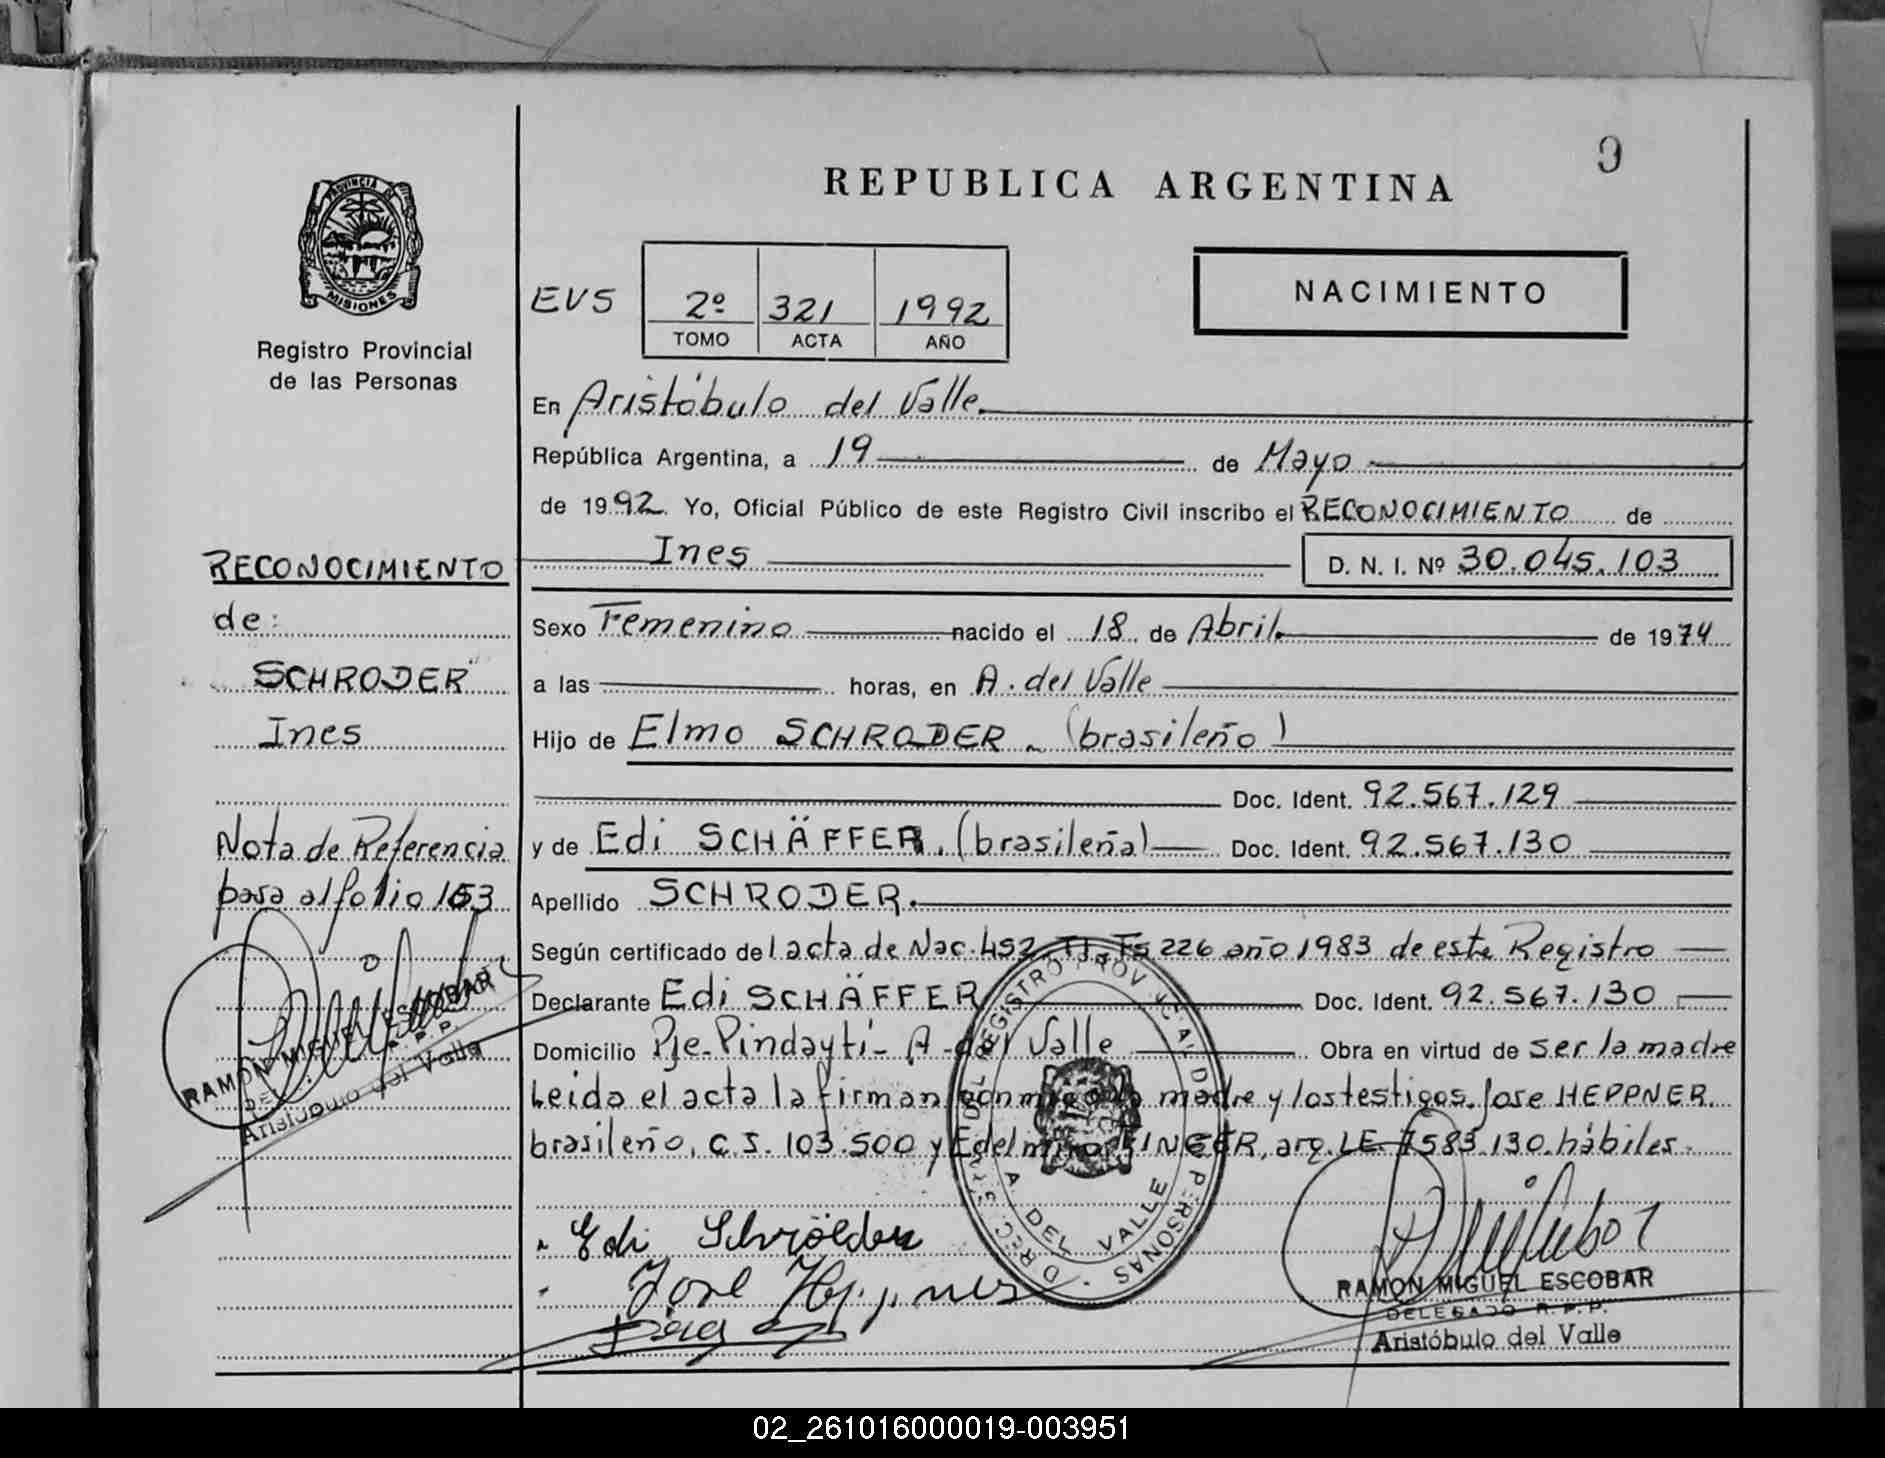 9
REPUBLICA ARGENTINA
PROVINCIA DE
MISIONES
Registro Provincial
de las Personas
EVS
2º 321 1992
TOMO ACTA AÑO
NACIMIENTO
En Aristóbulo del Valle
República Argentina, a 19 de Mayo
de 1992. Yo, Oficial Público de este Registro Civil inscribo el RECONOCIMIENTO de
Ines D. N. I. Nº 30.045.103
Sexo Femenino nacido el 18 de Abril de 1974
a las horas, en A. del Valle
Hijo de Elmo SCHRODER (brasileño)
Doc. Ident. 92.567.129
y de Edi SCHÄFFER. (brasileña) Doc. Ident. 92.567.130
Apellido SCHRODER.
Según certificado del acta de Nac. 492 Fs 226 año 1983 de este Registro
Declarante Edi SCHÄFFER Doc. Ident. 92.567.130
Domicilio Pje-Pindaytí- A. del Valle Obra en virtud de ser la madre
Leida el acta la firman madre y los testigos. Jose HEPPNER.
brasileño, C.I. 103.500 y Edelmiro arg. L.E. 7583.130. hábiles.
Edi Schröder
José Heppner
RAMON MIGUEL ESCOBAR
DELEGADO R.P.P.
Aristóbulo del Valle
A. DEL VALLE
RECONOCIMIENTO
de:
SCHRODER
Ines
Nota de Referencia
pasa al folio 153
RAMON MIGUEL ESCOBAR
Aristóbulo del Valle
02_261016000019-003951